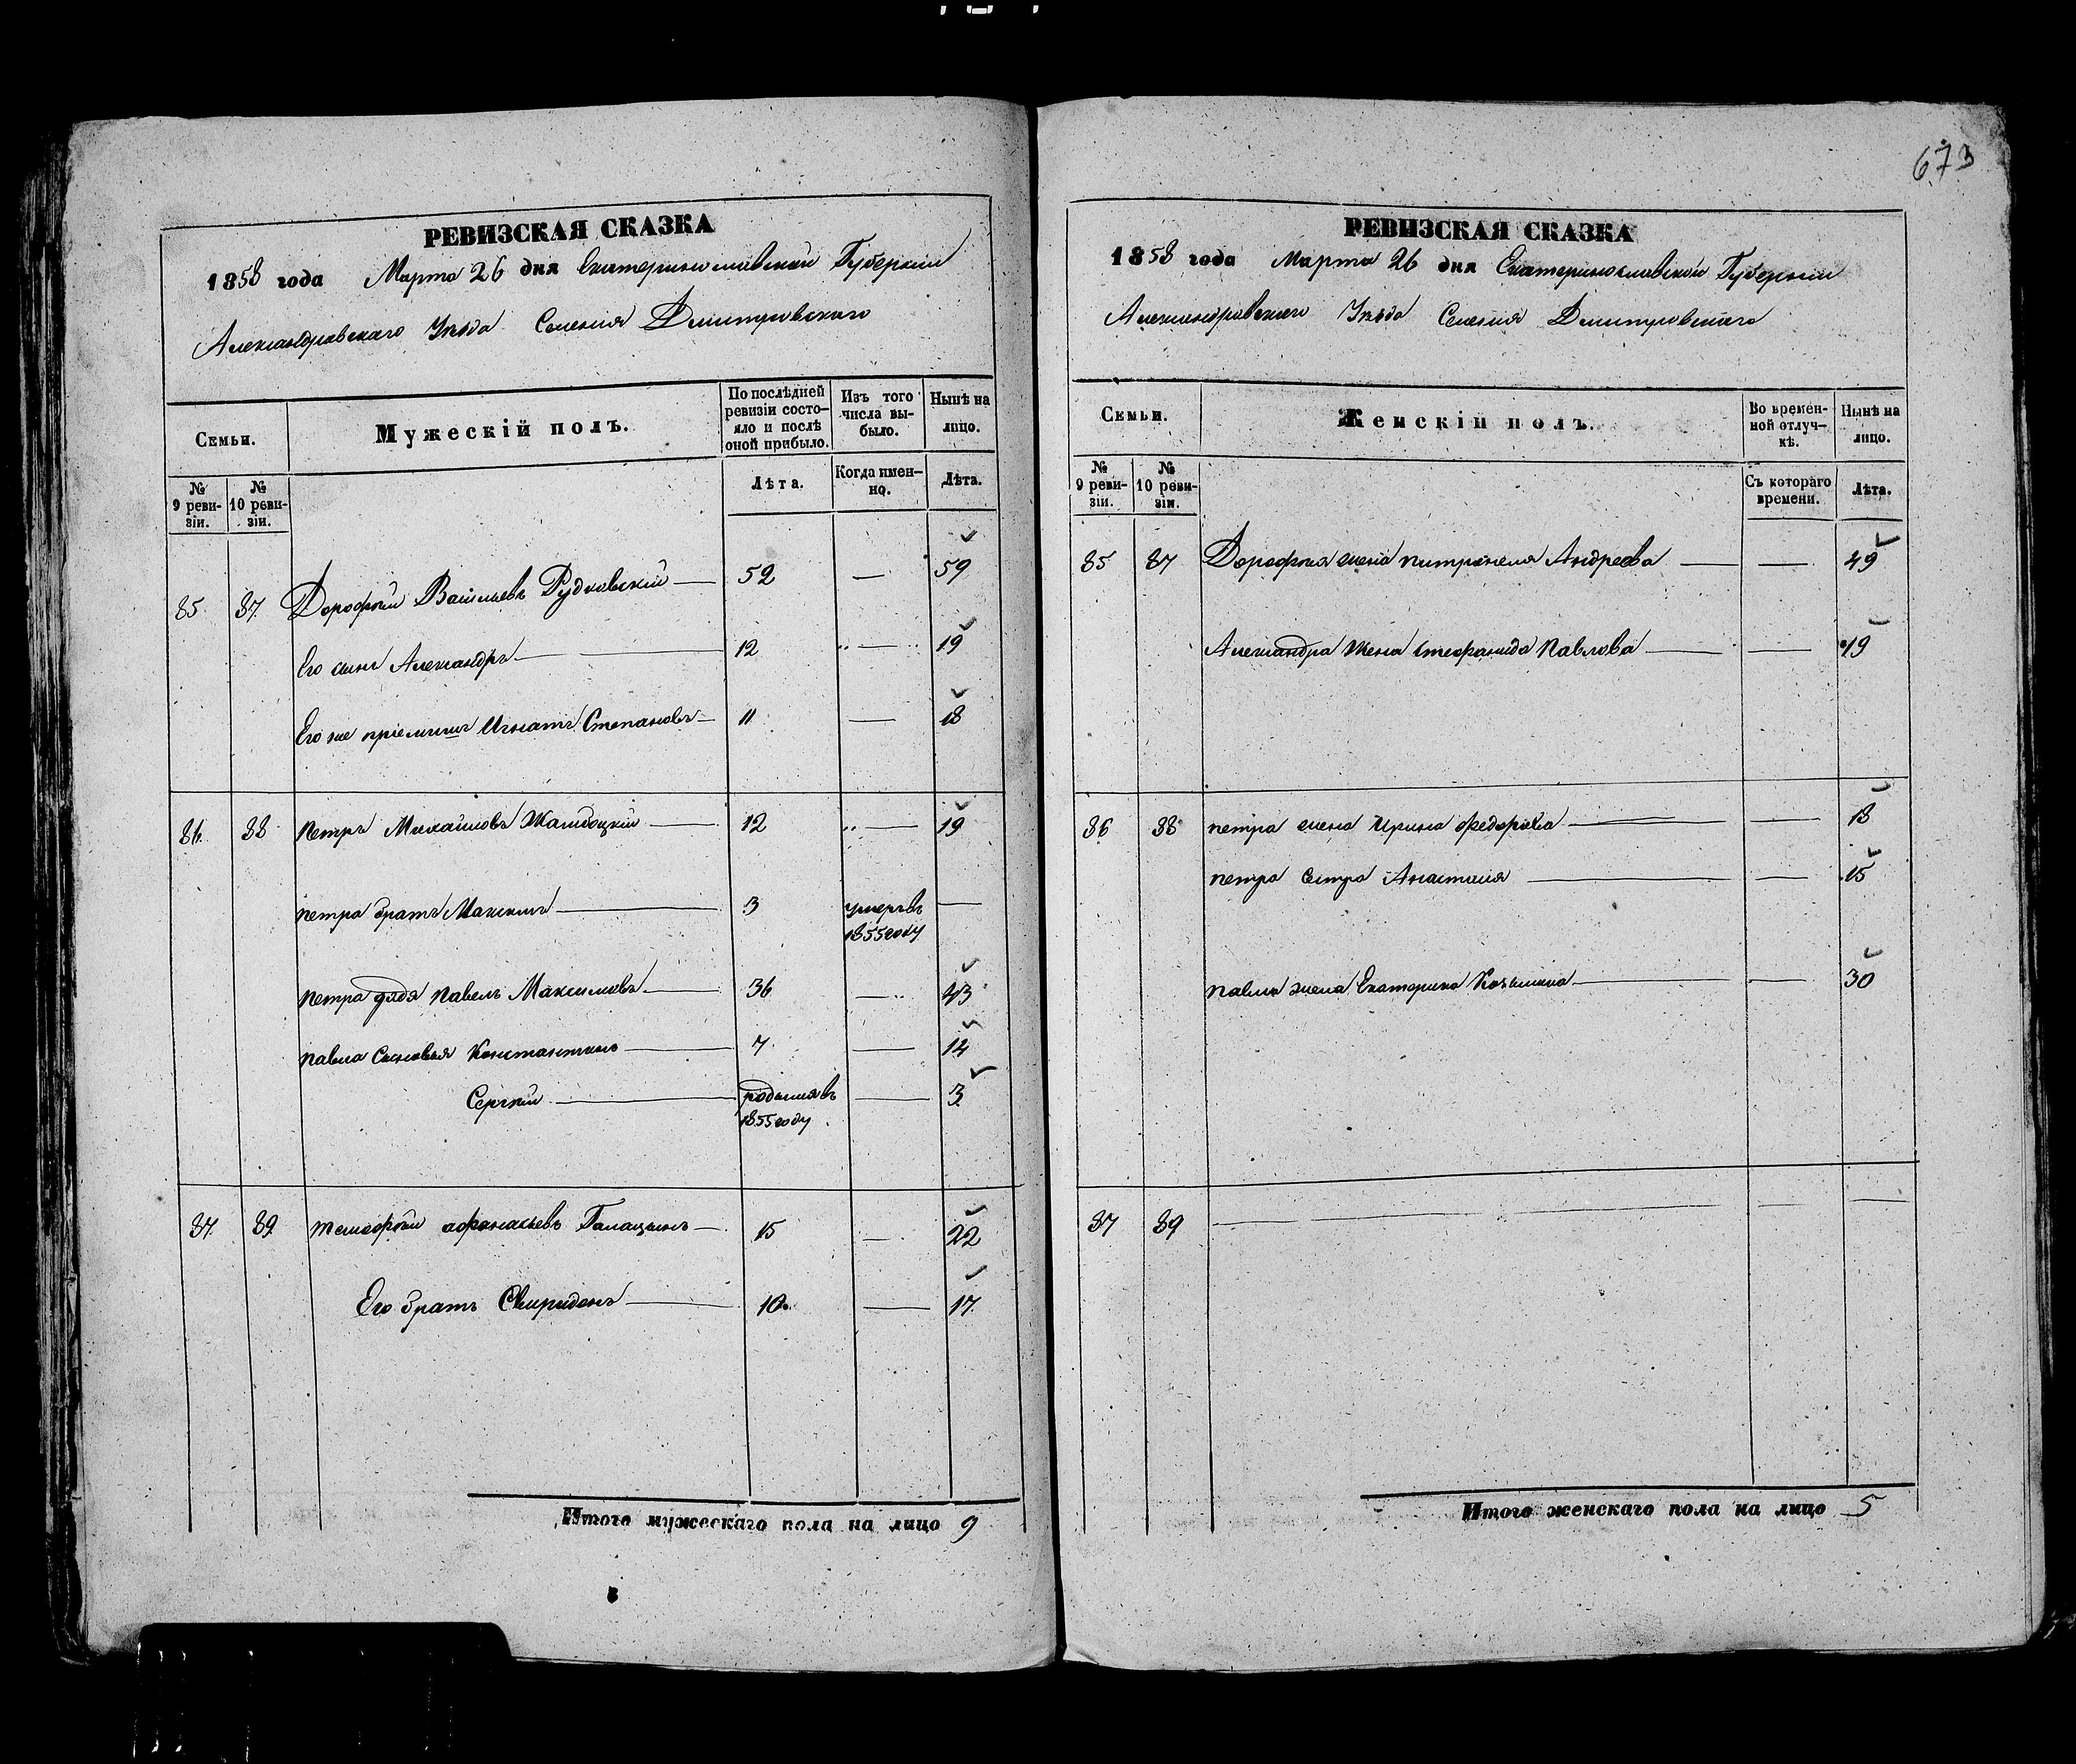 673
РЕВИЗСКАЯ СКАЗКА
1858 года Марта 26 дня Екатеринославской Губернии
Александровскаго Уезда Селения Дмитровскаго
Семьи.
Мужескій полъ.
По послѣдней ревизіи состо-
яло и послѣ оной прибыло.
Изъ того числа вы-
было.
Нынѣ на лицо.
№ 9 реви-
зіи.
№ 10 реви-
зіи.
Лѣта.
Когда имен-
но.
Лѣта.
85 87 Дорофей Васильевъ Рудковскій — 52 — 59
Его сынъ Александръ — 12 — 19
Его же пріемышъ Игнатъ Степановъ — 11 — 18
86 88 Петръ Михайловъ — 12 — 19
Петра братъ Максимъ — 3 умеръ въ —
1855 году
Петра дядя Павелъ Максимовъ — 36 — 43
Павла Сыновья Константинъ — 7 — 14
Сергей — родился въ — 3
1855 году
87 89 Тимофей Афанасьевъ — 15 — 22
Его братъ Свиридонъ — 10 — 17
Итого мужескаго пола на лицо 9
РЕВИЗСКАЯ СКАЗКА
1858 года Марта 26 дня Екатеринославской Губернии
Александровскаго Уезда Селения Дмитровскаго
Семьи.
Женскій полъ.
Во времен-
ной отлуч-
кѣ.
Нынѣ на лицо.
№ 9 реви-
зіи.
№ 10 реви-
зіи.
Съ котораго времени.
Лѣта.
85 87 Дорофея жена Питронеля Андреева — — 49
Александра жена Стефанида Павлова — — 19
86 88 Петра жена Ирина Федорова — — 18
Петра Сестра Анастасия — — 15
Павла жена Екатерина Козьмина — — 30
87 89 — — —
Итого женскаго пола на лицо 5